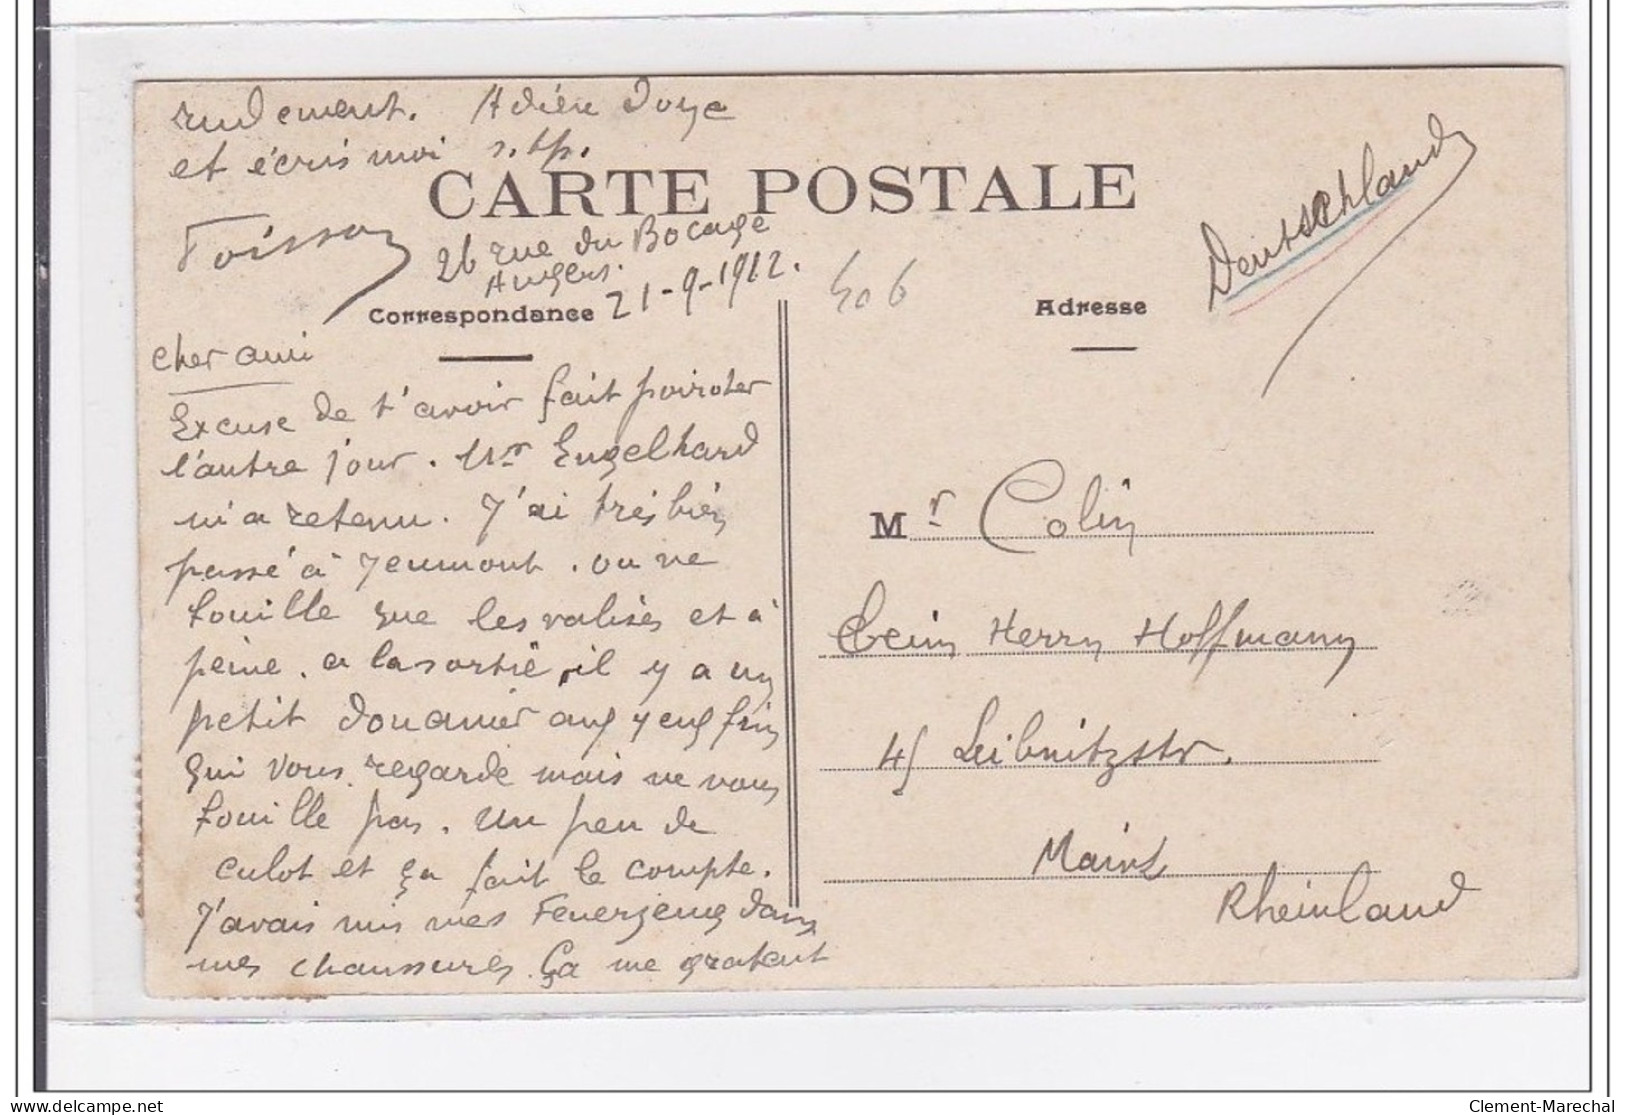 rudement. Adieu
et écris moi s.t.p.
CARTE POSTALE
26 rue du Bocage
Angers.
21-9-1912.
Correspondance
406
Adresse
Deutschland
cher ami
Excuse de t'avoir fait poiroter
l'autre jour. Mr Engelhard
m'a retenu. J'ai très bien
passé à Jeumont. on ne
fouille que les valises et à
peine. a la sortie, il y a un
petit douanier aux yeux fins
qui vous regarde mais ne vous
fouille pas. Un peu de
culot et ça fait le compte.
J'avais mis mes Feuerzeug dans
mes chaussures. Ça me grataut
Mr Colin
beim Herrn Hoffmann
45 Leibnitzstr.
Mainz
Rheinland
Clement-Marechal